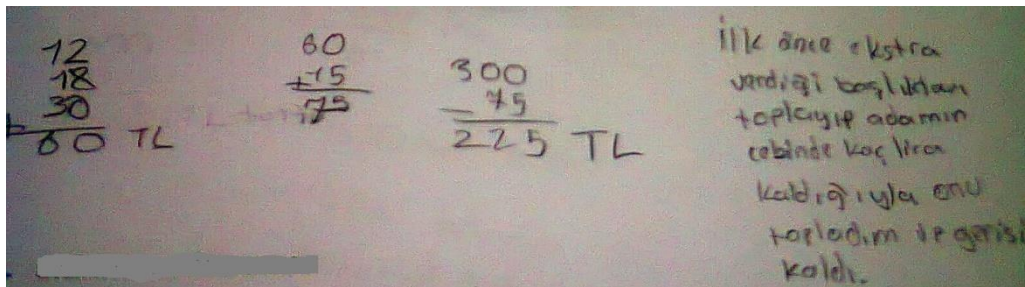 12
18
30
+
60 TL
60
+15
75
300
- 75
225 TL
İlk önce ekstra
verdiği başlıkları
toplayıp adamın
cebinde kaç lira
kaldığıyla onu
topladım ve gerisi
kaldı.